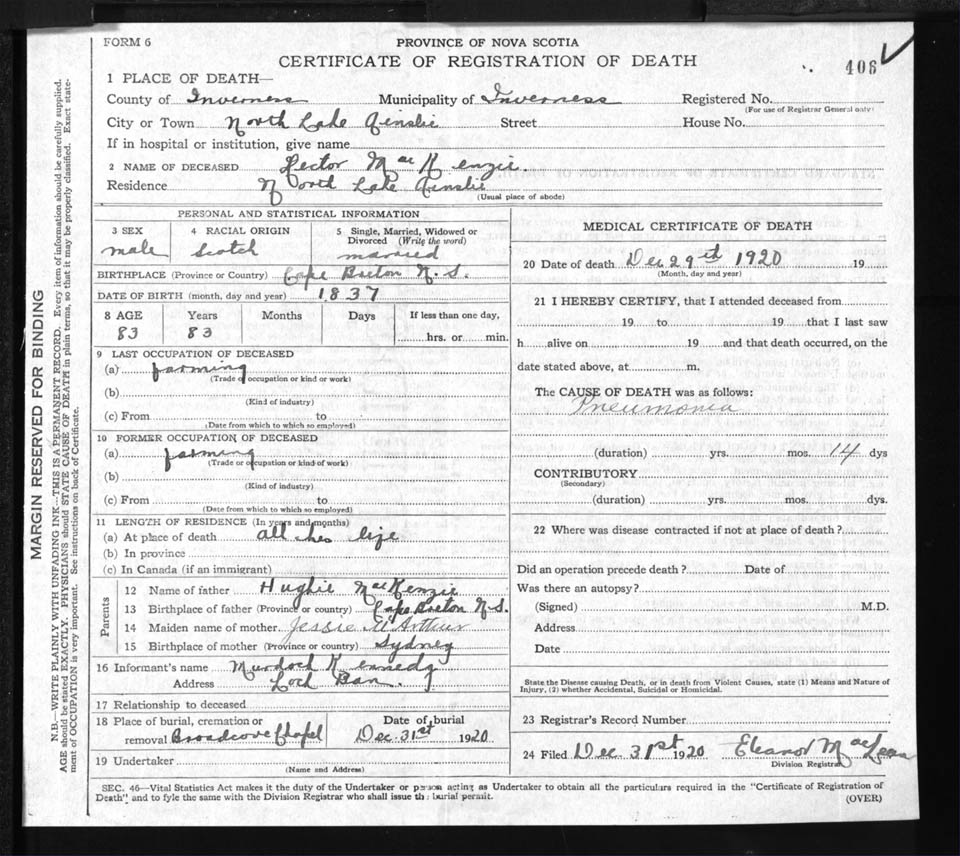 FORM 6
PROVINCE OF NOVA SCOTIA
CERTIFICATE OF REGISTRATION OF DEATH
406
1 PLACE OF DEATH—
County of Inverness Municipality of Inverness Registered No.
(For use of Registrar General only)
City or Town North Lake Ainslie Street House No.
If in hospital or institution, give name
2 NAME OF DECEASED Hector MacKenzie
Residence North Lake Ainslie
(Usual place of abode)
MARGIN RESERVED FOR BINDING
N.B.—WRITE PLAINLY WITH UNFADING INK—THIS IS A PERMANENT RECORD. Every item of information should be carefully supplied.
AGE should be stated EXACTLY. PHYSICIANS should STATE CAUSE OF DEATH in plain terms, so that it may be properly classified. Exact state-
ment of OCCUPATION is very important. See instructions on back of Certificate.
PERSONAL AND STATISTICAL INFORMATION
3 SEX
male
4 RACIAL ORIGIN
Scotch
5 Single, Married, Widowed or
Divorced (Write the word)
married
BIRTHPLACE (Province or Country) Cape Breton N.S.
DATE OF BIRTH (month, day and year) 1837
8 AGE Years Months Days If less than one day,
83 83 hrs. or min.
9 LAST OCCUPATION OF DECEASED
(a) farming
(Trade or occupation or kind or work)
(b)
(Kind of industry)
(c) From to
(Date from which to which so employed)
10 FORMER OCCUPATION OF DECEASED
(a) farming
(Trade or occupation or kind of work)
(b)
(Kind of industry)
(c) From to
(Date from which to which so employed)
11 LENGTH OF RESIDENCE (In years and months)
(a) At place of death all his life
(b) In province
(c) In Canada (if an immigrant)
Parents
12 Name of father Hughie MacKenzie
13 Birthplace of father (Province or country) Cape Breton N.S.
14 Maiden name of mother Jessie McArthur
15 Birthplace of mother (Province or country) Sydney
16 Informant's name Murdoch Kennedy
Address Loch Ban
17 Relationship to deceased
18 Place of burial, cremation or
removal Broadcove Chapel
Date of burial
Dec. 31st 1920
19 Undertaker
(Name and Address)
MEDICAL CERTIFICATE OF DEATH
20 Date of death Dec 29th 1920 19
(Month, day and year)
21 I HEREBY CERTIFY, that I attended deceased from
19 to 19 that I last saw
h alive on 19 and that death occurred, on the
date stated above, at m.
The CAUSE OF DEATH was as follows:
Pneumonia
(duration) yrs. mos. 14 dys
CONTRIBUTORY
(Secondary)
(duration) yrs. mos. dys.
22 Where was disease contracted if not at place of death?
Did an operation precede death? Date of
Was there an autopsy?
(Signed) M.D.
Address
Date
State the Disease causing Death, or in death from Violent Causes, state (1) Means and Nature of
Injury, (2) whether Accidental, Suicidal or Homicidal.
23 Registrar's Record Number
24 Filed Dec. 31st 1920 Eleanor MacLean
Division Registrar
SEC. 46—Vital Statistics Act makes it the duty of the Undertaker or person acting as Undertaker to obtain all the particulars required in the "Certificate of Registration of
Death" and to fyle the same with the Division Registrar who shall issue the burial permit.
(OVER)